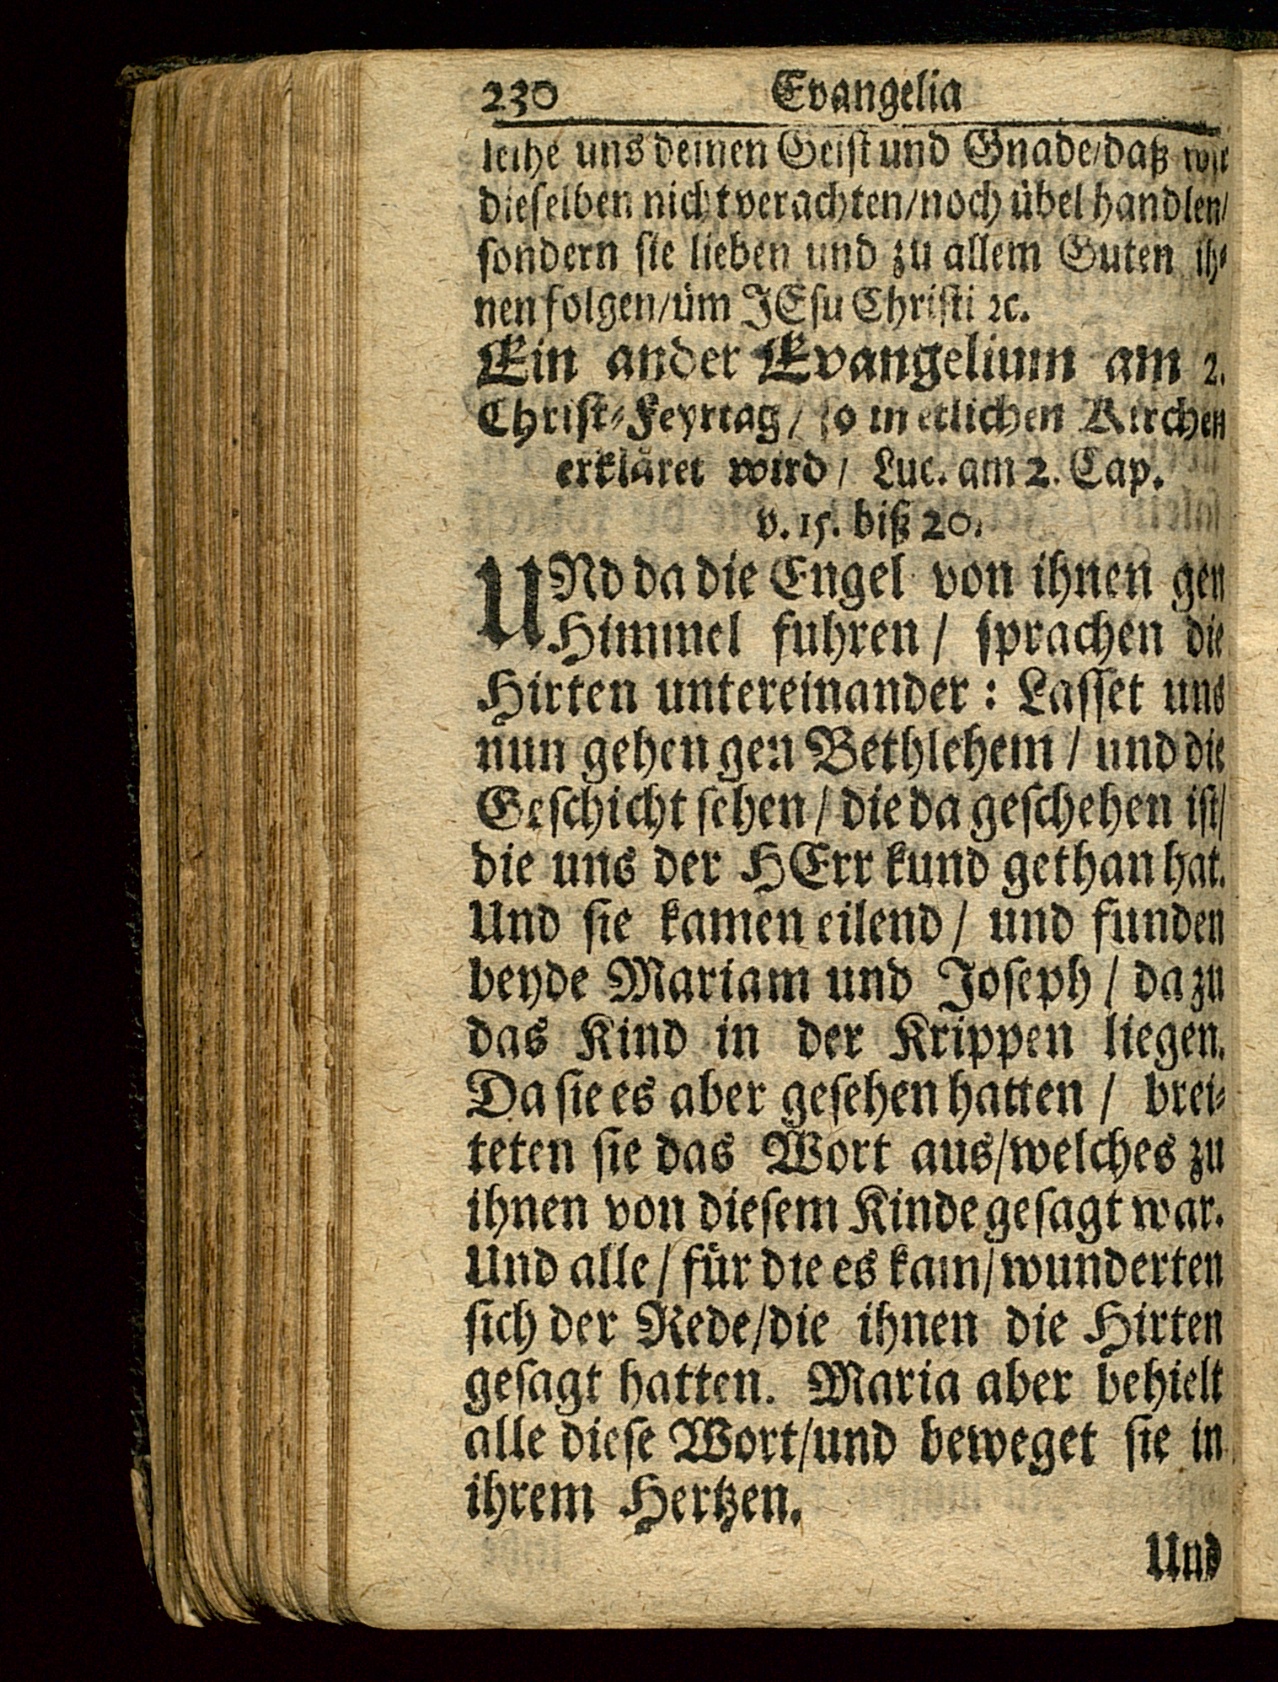 230 Evangelia
leihe uns deinen Geist und Gnade/daß wir
dieselben nicht verachten/noch übel handlen/
sondern sie lieben und zu allem Guten ih-
nen folgen/üm JEsu Christi ꝛc.
Ein ander Evangelium am 2.
Christ-Feyrtag/ so in etlichen Kirchen
erkläret wird/ Luc. am 2. Cap.
v. 15. biß 20.
UNd da die Engel von ihnen gen
Himmel fuhren/ sprachen die
Hirten untereinander: Lasset uns
nun gehen gen Bethlehem/ und die
Geschicht sehen/ die da geschehen ist/
die uns der HErr kund gethan hat.
Und sie kamen eilend/ und funden
beyde Mariam und Joseph/ da zu
das Kind in der Krippen liegen.
Da sie es aber gesehen hatten/ brei-
teten sie das Wort aus/welches zu
ihnen von diesem Kinde gesagt war.
Und alle/ für die es kam/wunderten
sich der Rede/die ihnen die Hirten
gesagt hatten. Maria aber behielt
alle diese Wort/und beweget sie in
ihrem Hertzen.
Und